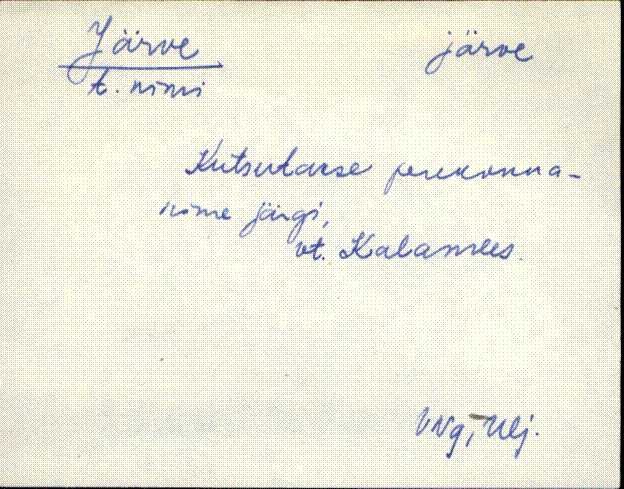 Järve järve
t. nimi
Kutsutakse perekonna-
nime järgi,
vt. Kalamees.
VNg, Ulj.